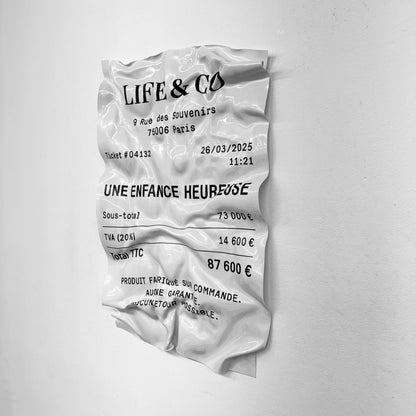 LIFE & CO
9 Rue des Souvenirs
75006 Paris
Ticket #04132 26/03/2025
11:21
UNE ENFANCE HEUREUSE
Sous-total 73 000 €
TVA (20%) 14 600 €
Total TTC 87 600 €
PRODUIT FABRIQUÉ SUR COMMANDE.
AUCUNE GARANTIE.
AUCUN RETOUR POSSIBLE.